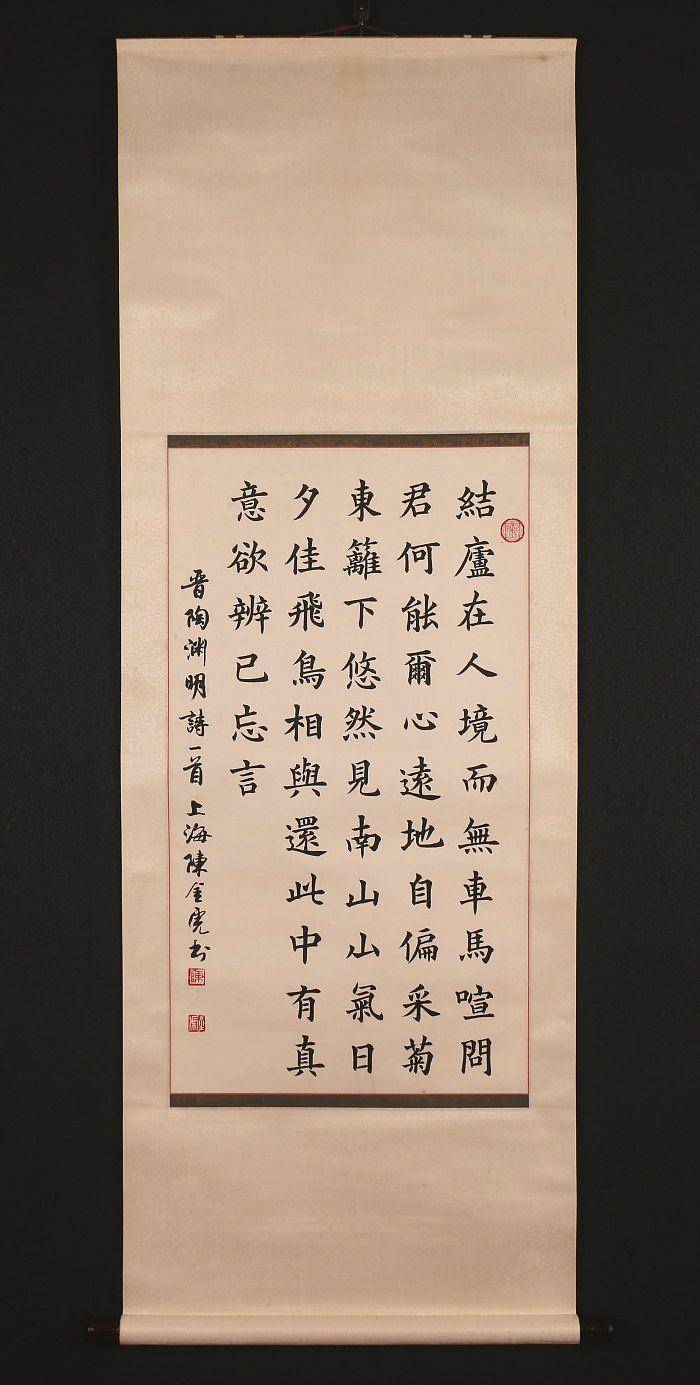 結廬在人境而無車馬喧問
君何能爾心遠地自偏采菊
東籬下悠然見南山山氣日
夕佳飛鳥相與還此中有真
意欲辨已忘言
晋陶渊明詩一首上海陳金彪书